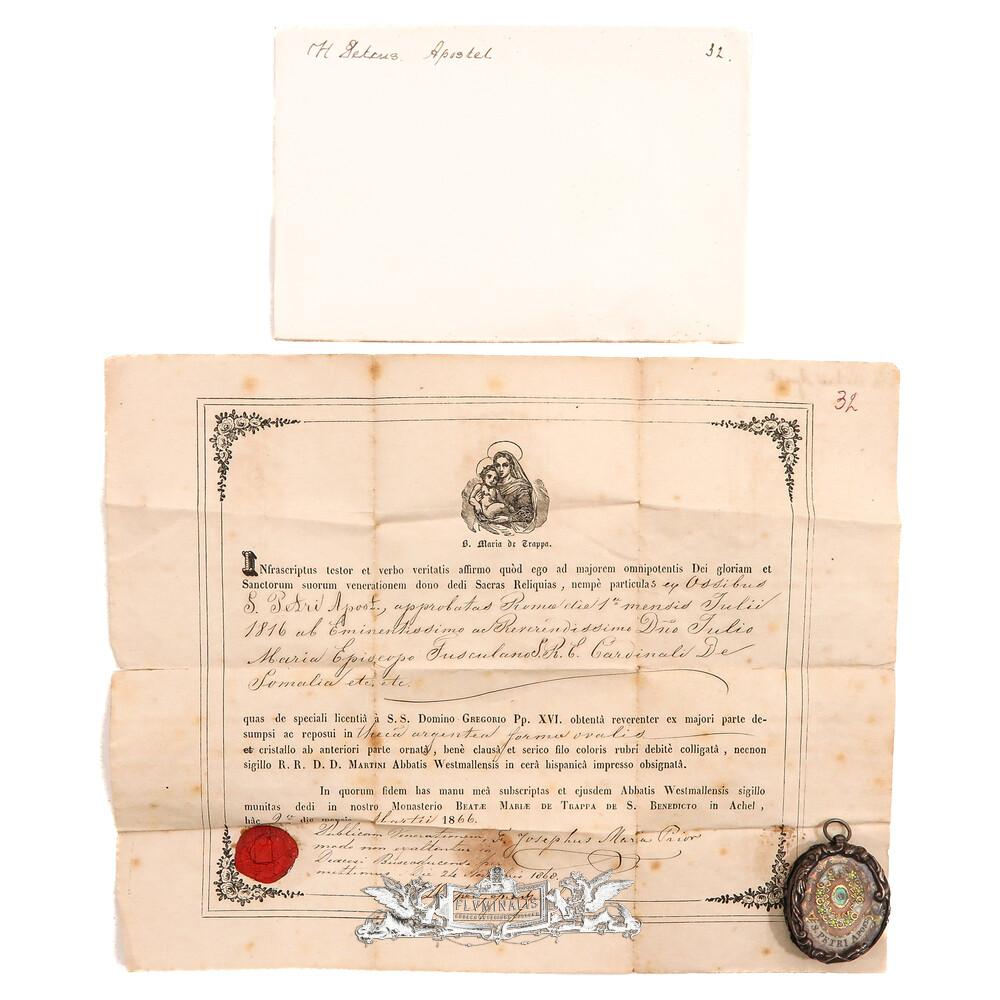 H Petrus. Apostel 32.
32
B. Maria de Trappa.
INfrascriptus testor et verbo veritatis affirmo quòd ego ad majorem omnipotentis Dei gloriam et
Sanctorum suorum venerationem dono dedi Sacras Reliquias, nempè particulas ex Ossibus
S. Petri Apost., approbatas Romæ die 1ª mensis Julii
1816 ab Eminentissimo ac Reverendissimo Dño Julio
Maria Episcopo Tusculano S. R. E. Cardinali De
Somalia etc. etc.
quas de speciali licentiâ à S. S. Domino GREGORIO Pp. XVI. obtentâ reverenter ex majori parte de-
sumpsi ac reposui in theca argentea forma ovalis
et cristallo ab anteriori parte ornatâ, benè clausâ et serico filo coloris rubri debitè colligatâ, necnon
sigillo R. R. D. D. MARTINI Abbatis Westmallensis in cerâ hispanicâ impresso obsignatâ.
In quorum fidem has manu meâ subscriptas et ejusdem Abbatis Westmallensis sigillo
munitas dedi in nostro Monasterio BEATÆ MARIÆ DE TRAPPA DE S. BENEDICTO in Achel,
hâc 9ª die mensis Martii 1866.
Publicam Venerationem F. Josephus Maria Prior
modo non exallentur in
Diœcesi Buscoducensi
mittimus 24 1868.
FLVMINALIS
S. PETRI APOST.